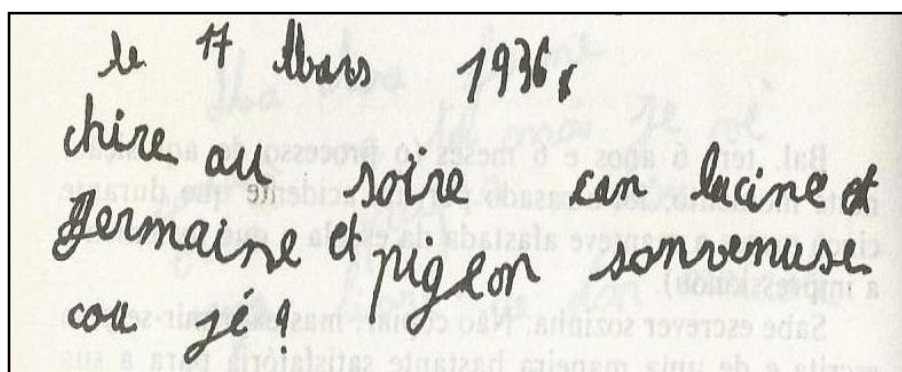 le 17 Mars 1936,
chire au soïre can lucine et
Germaine et pigeon sonvenuse
cou jé?